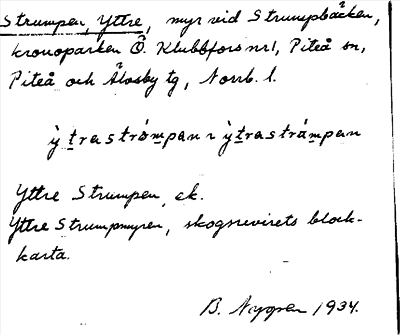 Strumpen, Yttre, myr vid Strumpbäcken,
kronoparken Ö. Klubbfors nr 1, Piteå sn,
Piteå och Älvsby tg, Norrb. l.
ỳtrastrómpan ~ ỳtrastrámpan
Yttre Strumpen, ek.
Yttre Strumpmyren, skogsrevirets block-
karta.
B. Nygren 1934.